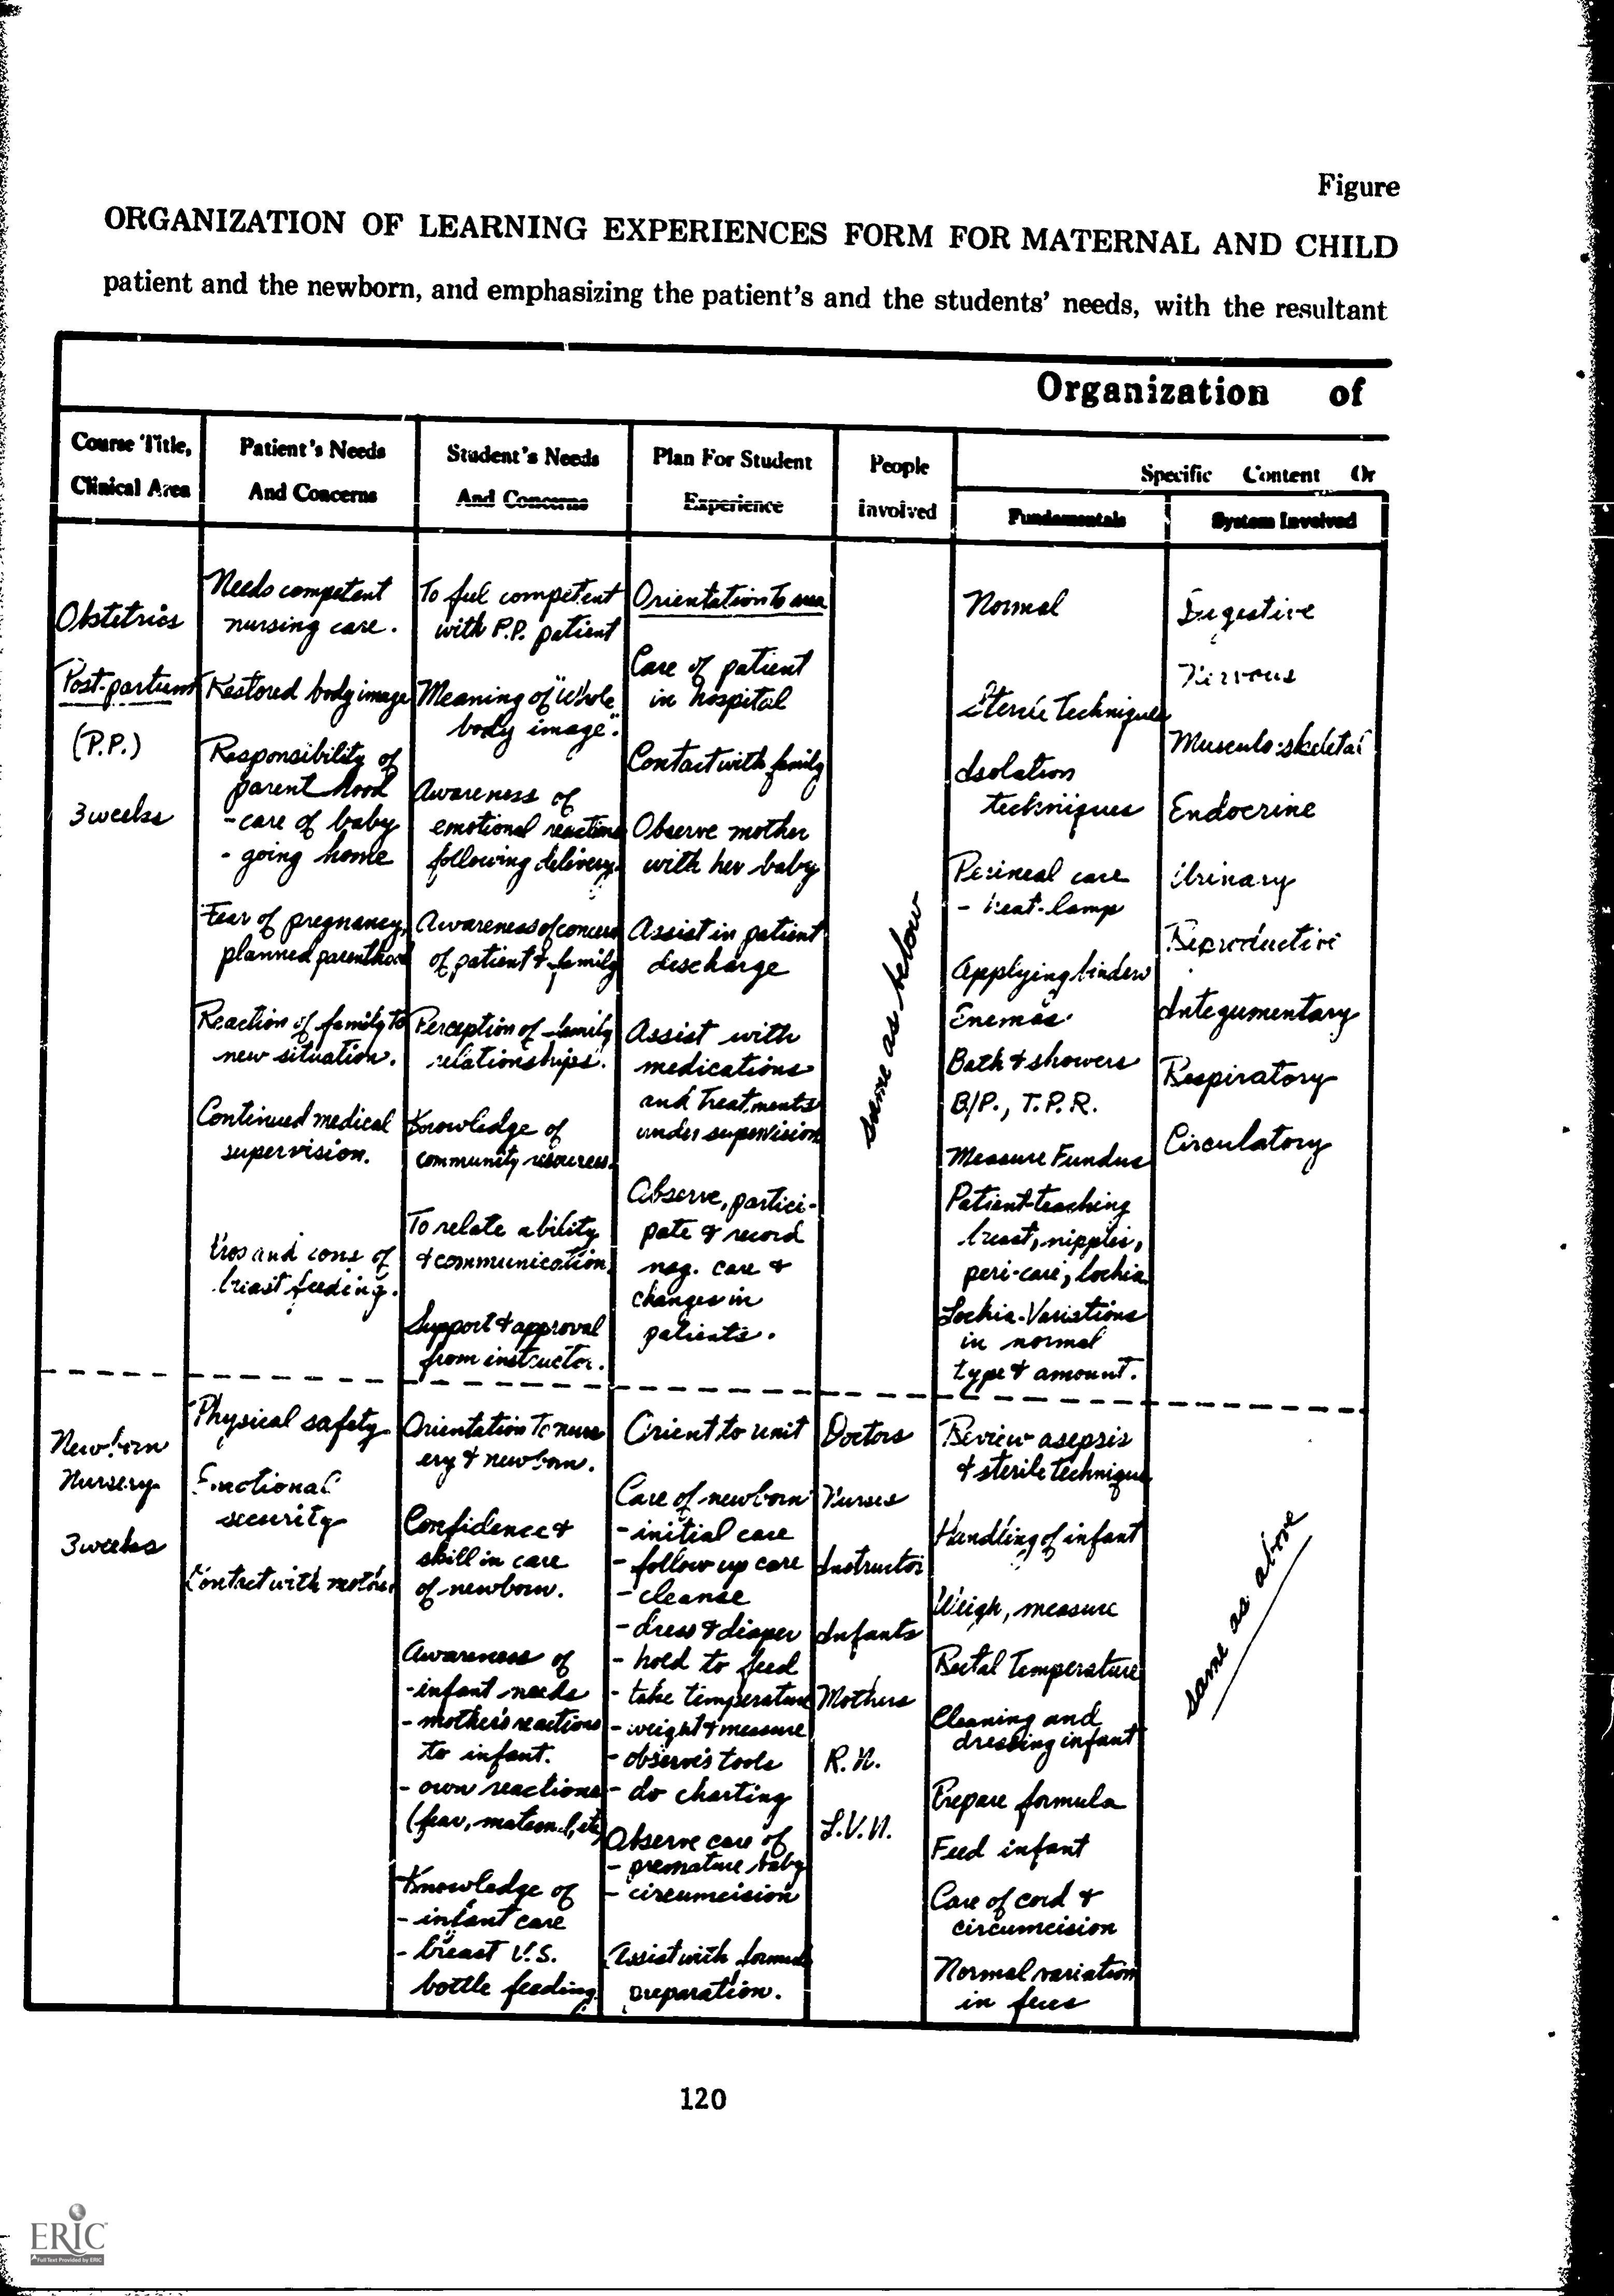 Figure
ORGANIZATION OF LEARNING EXPERIENCES FORM FOR MATERNAL AND CHILD
patient and the newborn, and emphasizing the patient's and the students' needs, with the resultant
Organization of
Course Title,
Clinical Area
Patient's Needs
And Concerns
Student's Needs
And Concerns
Plan For Student
Experience
People
involved
Specific Content Or
Fundamentals
System Involved
Obstetrics
Post-partum
(P.P.)
3 weeks
Needs competent
nursing care.
Restored body image
Responsibility of
parent hood
- care of baby
- going home
Fear of pregnancy,
planned parenthood
Reaction of family to
new situation.
Continued medical
supervision.
Pros and cons of
breast feeding.
To feel competent
with P.P. patient
Meaning of "whole
body image".
Awareness of
emotional reactions
following delivery.
Awareness of concern
of patient & family
Perception of family
relationships.
Knowledge of
community resources.
To relate ability
& communication.
Support & approval
from instructor.
Orientation to area
Care of patient
in hospital
Contact with family
Observe mother
with her baby
Assist in patient
discharge
Assist with
medications
and treatments
under supervision
Observe, partici-
pate & record
nsg. care &
changes in
patients.
same as below
Normal
Sterile Techniques
Isolation
techniques
Perineal care
- heat-lamp
Applying binders
Enemas
Bath & showers
B/P., T.P.R.
Measure Fundus
Patient-teaching
breast, nipples,
peri-care, lochia
Lochia-Variations
in normal
type & amount.
Digestive
Nervous
Musculo-skeletal
Endocrine
Urinary
Reproductive
Integumentary
Respiratory
Circulatory
Newborn
Nursery
3 weeks
Physical safety
Emotional
security
Contact with mother
Orientation to nurs
ery & newborn.
Confidence &
skill in care
of newborn.
Awareness of
- infant needs
- mother's reactions
to infant.
- own reactions
(fear, maternal, etc)
Knowledge of
- infant care
- breast V.S.
bottle feeding.
Orient to unit
Care of newborn
- initial care
- follow up care
- cleanse
- dress & diaper
- hold to feed
- take temperature
- weight & measure
- observe's tools
- do charting
Observe care of
- premature baby
- circumcision
Assist with formula
preparation.
Doctors
Nurses
Instructor
Infants
Mothers
R.N.
L.V.N.
Review asepsis
& sterile technique
Handling of infant
Weigh, measure
Rectal Temperature
Cleaning and
dressing infant
Prepare formula
Feed infant
Care of cord &
circumcision
Normal variation
in feces
same as above
120
ERIC
Full Text Provided by ERIC